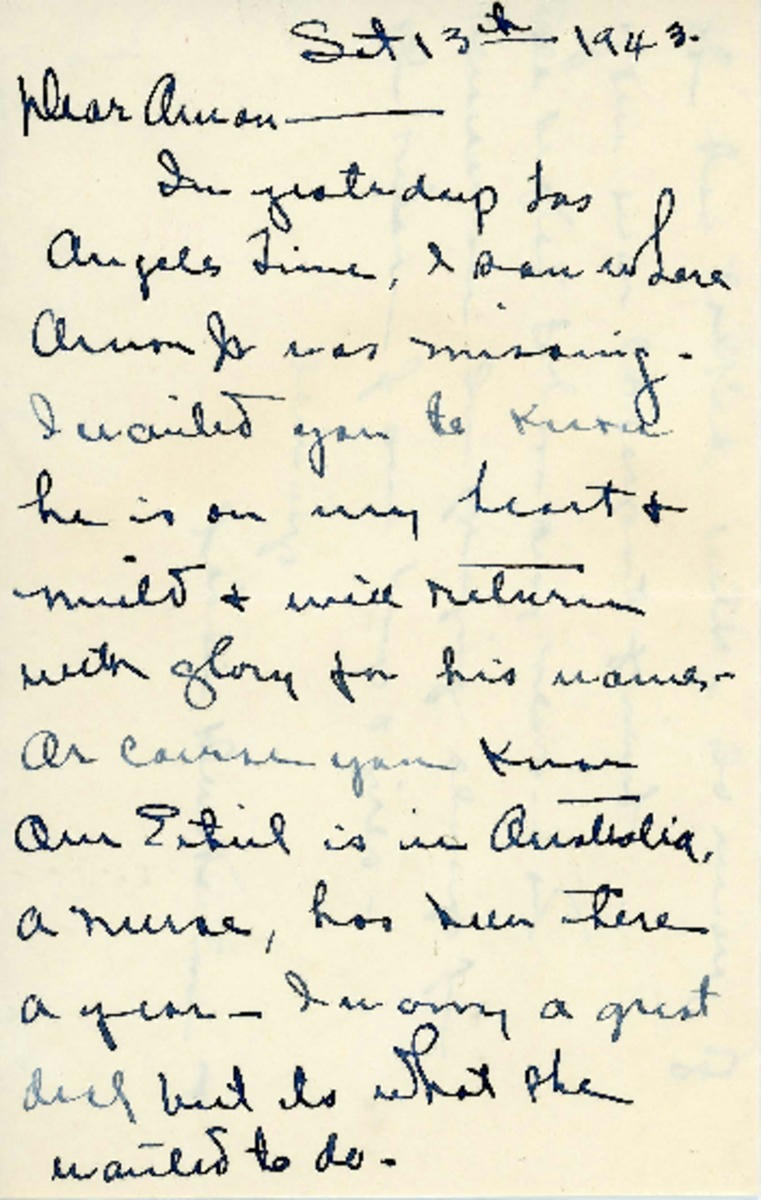 Set 13th 1943.
Dear Amon —
In yesterday Los
Angeles Time, I saw where
Amon Jr was missing -
I wanted you to know
he is on my heart &
mind & will return
with glory for his name -
Of course you know
Our Ethil is in Australia,
a nurse, has been there
a year - I worry a great
deal but its what she
wanted to do -